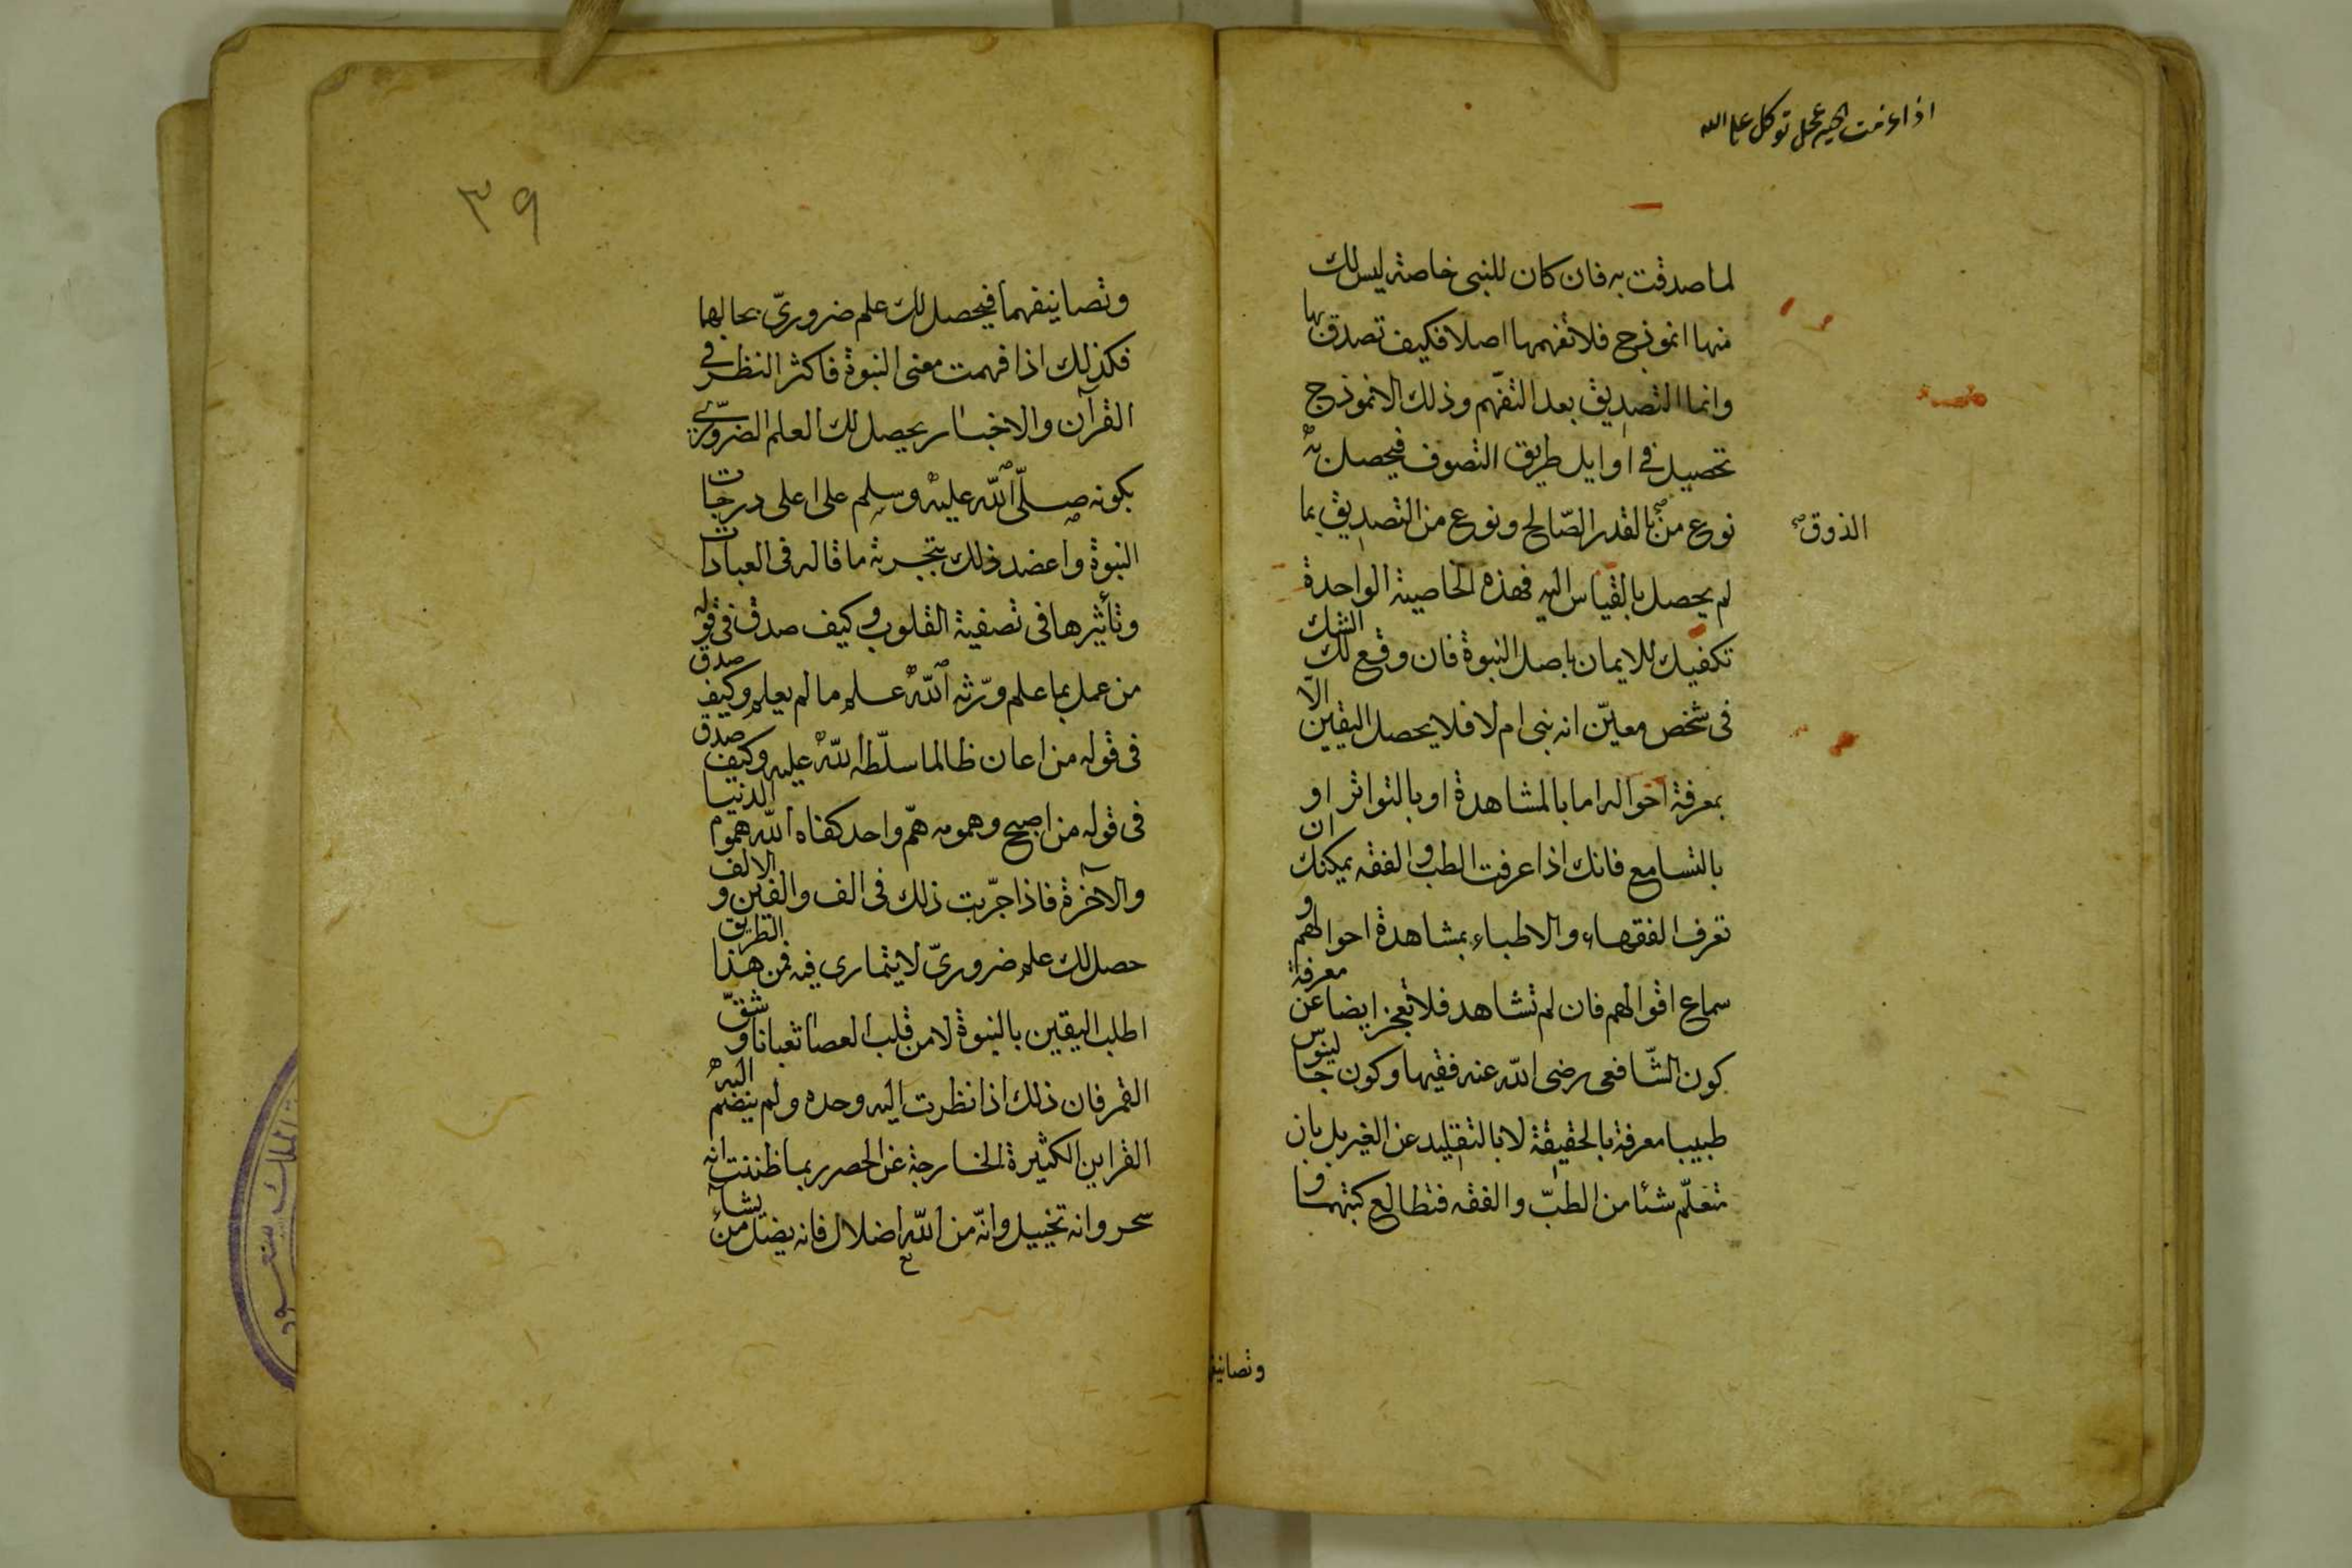 اذا عزمت الخير عجل توكل على الله
لما صدقت به فان كان للنبى خاصة ليس لك
منها انموذج فلا تفهمها اصلا فكيف تصدق بها
وانما التصديق بعد التفهّم وذلك الانموذج
تحصيل فى اوايل طريق التصوف فيحصل به
نوع من بالقدر الصّالح ونوع من التصديق بما
الذوق صح
لم يحصل بالقياس اليه فهذه الخاصية الواحدة
تكفيك للايمان باصل النبوة فان وقع لك الشك
فى شخص معيّن انه نبى ام لا فلا يحصل اليقين الّا
بمعرفة احواله اما بالمشاهدة او بالتواتر او
بالتسامع فانك اذا عرفت الطب والفقه يمكنك ان
تعرف الفقهاء والاطباء بمشاهدة احوالهم و
سماع اقوالهم فان لم تشاهد فلا تعجز ايضا عن معرفة
كون الشّافعى رضى الله عنه فقيها وكون جالينوس
طبيبا معرفة بالحقيقة لا بالتقليد عن الغير بل بان
تتعلّم شئا من الطبّ والفقه فتطالع كتبهما و
وتصانيف
٣٩
وتصانيفهما فيحصل لك علم ضرورىّ بحالهما
فكذلك اذا فهمت معنى النبوة فاكثر النظر فى
القرآن والاخبار يحصل لك العلم الضرورىّ
بكونه صلّى الله عليه وسلم على اعلى درجات
النبوة واعضد ذلك بتجربة ما قاله فى العبادات
وتأثيرها فى تصفية القلوب وكيف صدق فى قوله
من عمل بما علم ورّثه الله علم ما لم يعلم وكيف صدق
فى قوله من اعان ظالما سلّطه الله عليه وكيف صدق
فى قوله من اصبح وهمومه همّ واحد كفاه الله هموم الدنيا
والآخرة فاذا جرّبت ذلك فى الف والفين و الالف
حصل لك علم ضرورىّ لا يتمارى فيه فمن هذا الطريق
اطلب اليقين بالنبوة لا من قلب العصا ثعبانا و شقّ
القمر فان ذلك اذا نظرت اليه وحده ولم ينضم اليه
القراين الكثيرة الخارجة عن الحصر ربما ظننت انه
سحر وانه تخييل وانّه من الله اضلال فانه يضل من يشاء
الملك سعود